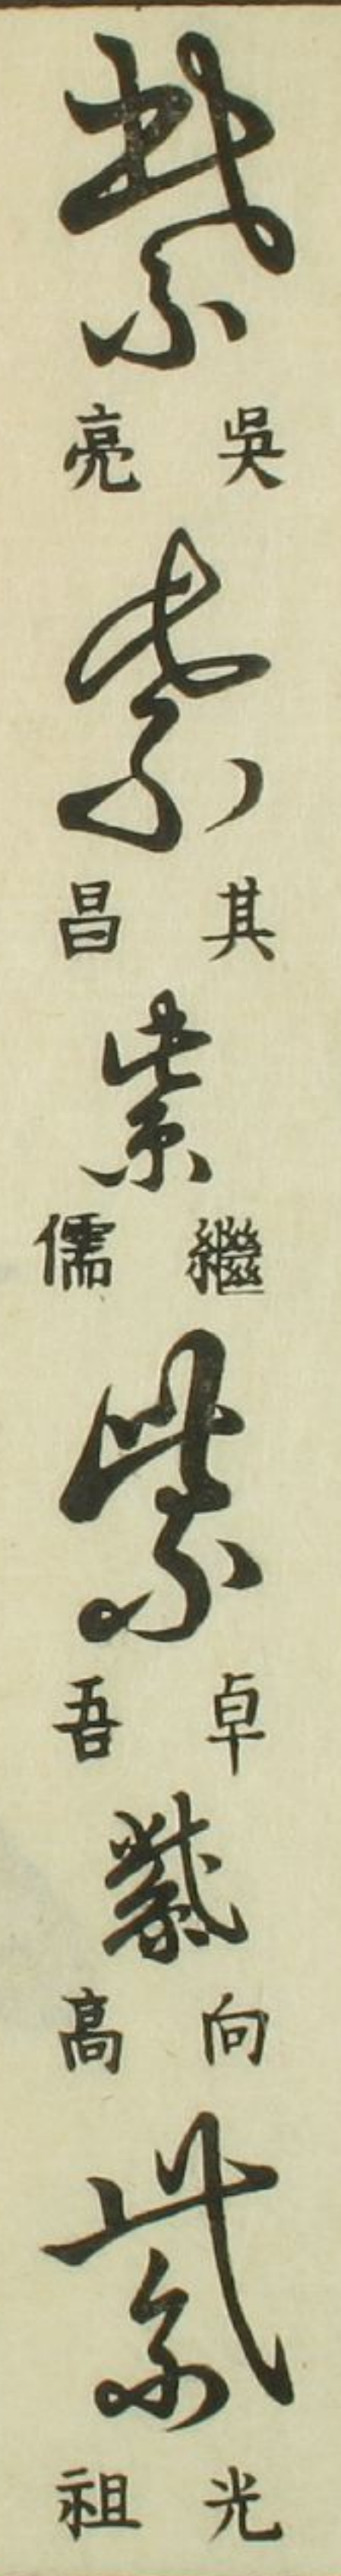 紫
吳亮
紫
其昌
紫
繼儒
紫
卓吾
紫
向高
紫
光祖